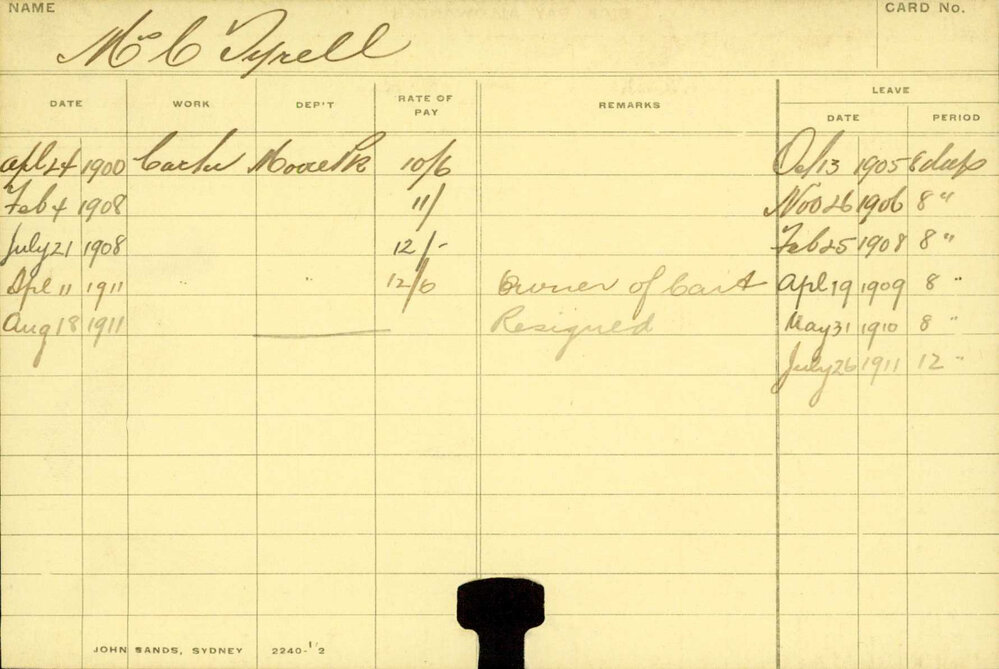 NAME
CARD No.
Mrs C Tyrell
DATE WORK DEP'T RATE OF PAY REMARKS LEAVE
DATE PERIOD
Apl 24 1900 Carter 10/6 Oct 13 1905 8 days
Feb 4 1908 11/ Nov 26 1906 8 "
July 21 1908 12/- Feb 25 1908 8 "
Apl 11 1911 " " 12/6 Owner of Cart Apl 19 1909 8 "
Aug 18 1911 Resigned May 31 1910 8 "
July 26 1911 12 "
JOHN SANDS, SYDNEY 2240-1/2